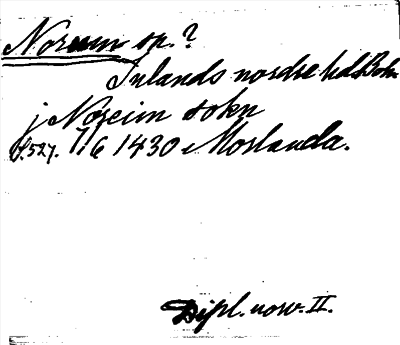 Noreim sp.?
Inlands nordre hd. Boh.
j Noreim sokn
S. 527. 7/6 1430 Morlanda.
Dipl. norv. II.